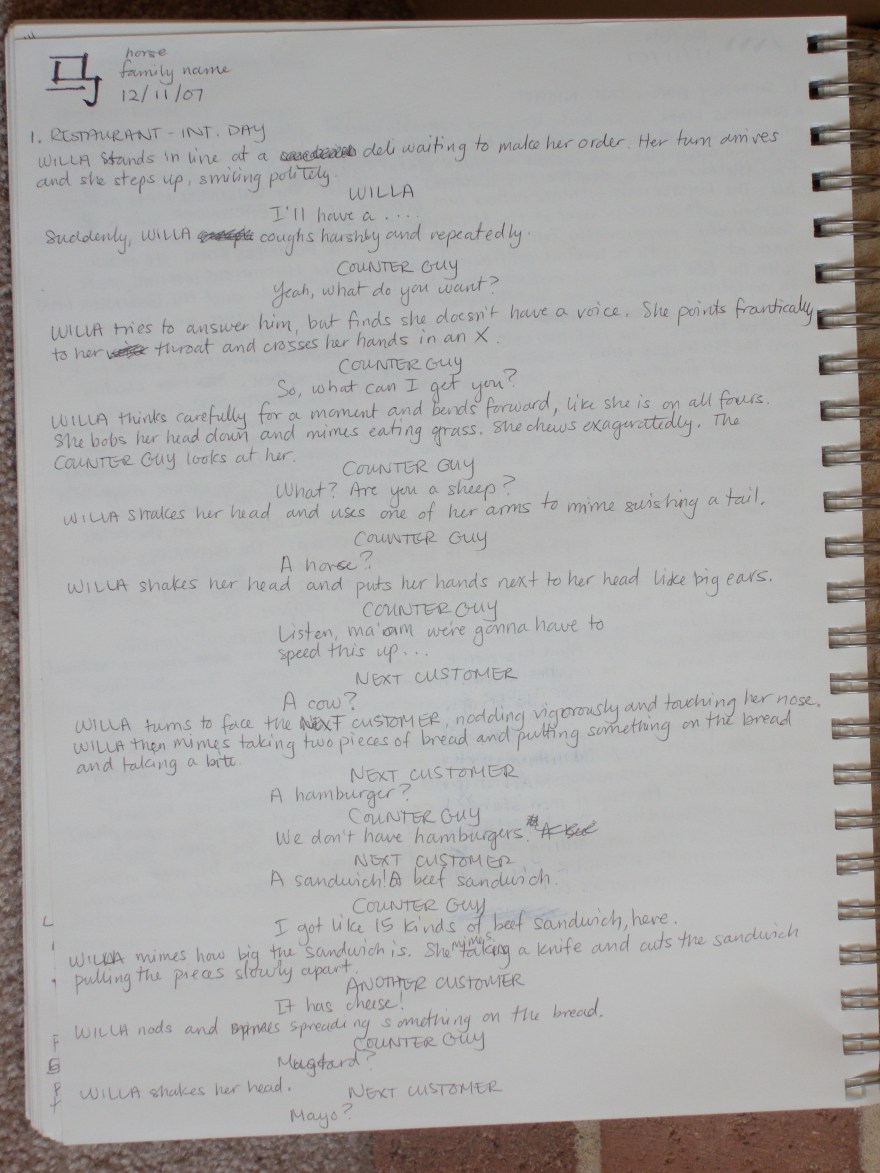 马
horse
family name
12/11/07
1. RESTAURANT - INT. DAY
WILLA stands in line at a deli waiting to make her order. Her turn arrives
and she steps up, smiling politely.
WILLA
I'll have a ....
Suddenly, WILLA coughs harshly and repeatedly.
COUNTER GUY
Yeah, what do you want?
WILLA tries to answer him, but finds she doesn't have a voice. She points frantically
to her throat and crosses her hands in an X.
COUNTER GUY
So, what can I get you?
WILLA thinks carefully for a moment and bends forward, like she is on all fours.
She bobs her head down and mimes eating grass. She chews exageratedly. The
COUNTER GUY looks at her.
COUNTER GUY
What? Are you a sheep?
WILLA shakes her head and uses one of her arms to mime swishing a tail.
COUNTER GUY
A horse?
WILLA shakes her head and puts her hands next to her head like big ears.
COUNTER GUY
Listen, ma'am we're gonna have to
speed this up...
NEXT CUSTOMER
A cow?
WILLA turns to face the NEXT CUSTOMER, nodding vigorously and touching her nose.
WILLA then mimes taking two pieces of bread and putting something on the bread
and taking a bite.
NEXT CUSTOMER
A hamburger?
COUNTER GUY
We don't have hamburgers.
NEXT CUSTOMER
A sandwich! A beef sandwich.
COUNTER GUY
I got like 15 kinds of beef sandwich, here.
WILLA mimes how big the sandwich is. She mimes taking a knife and cuts the sandwich
pulling the pieces slowly apart.
ANOTHER CUSTOMER
It has cheese!
WILLA nods and mimes spreading something on the bread.
COUNTER GUY
Mustard?
WILLA shakes her head.
NEXT CUSTOMER
Mayo?